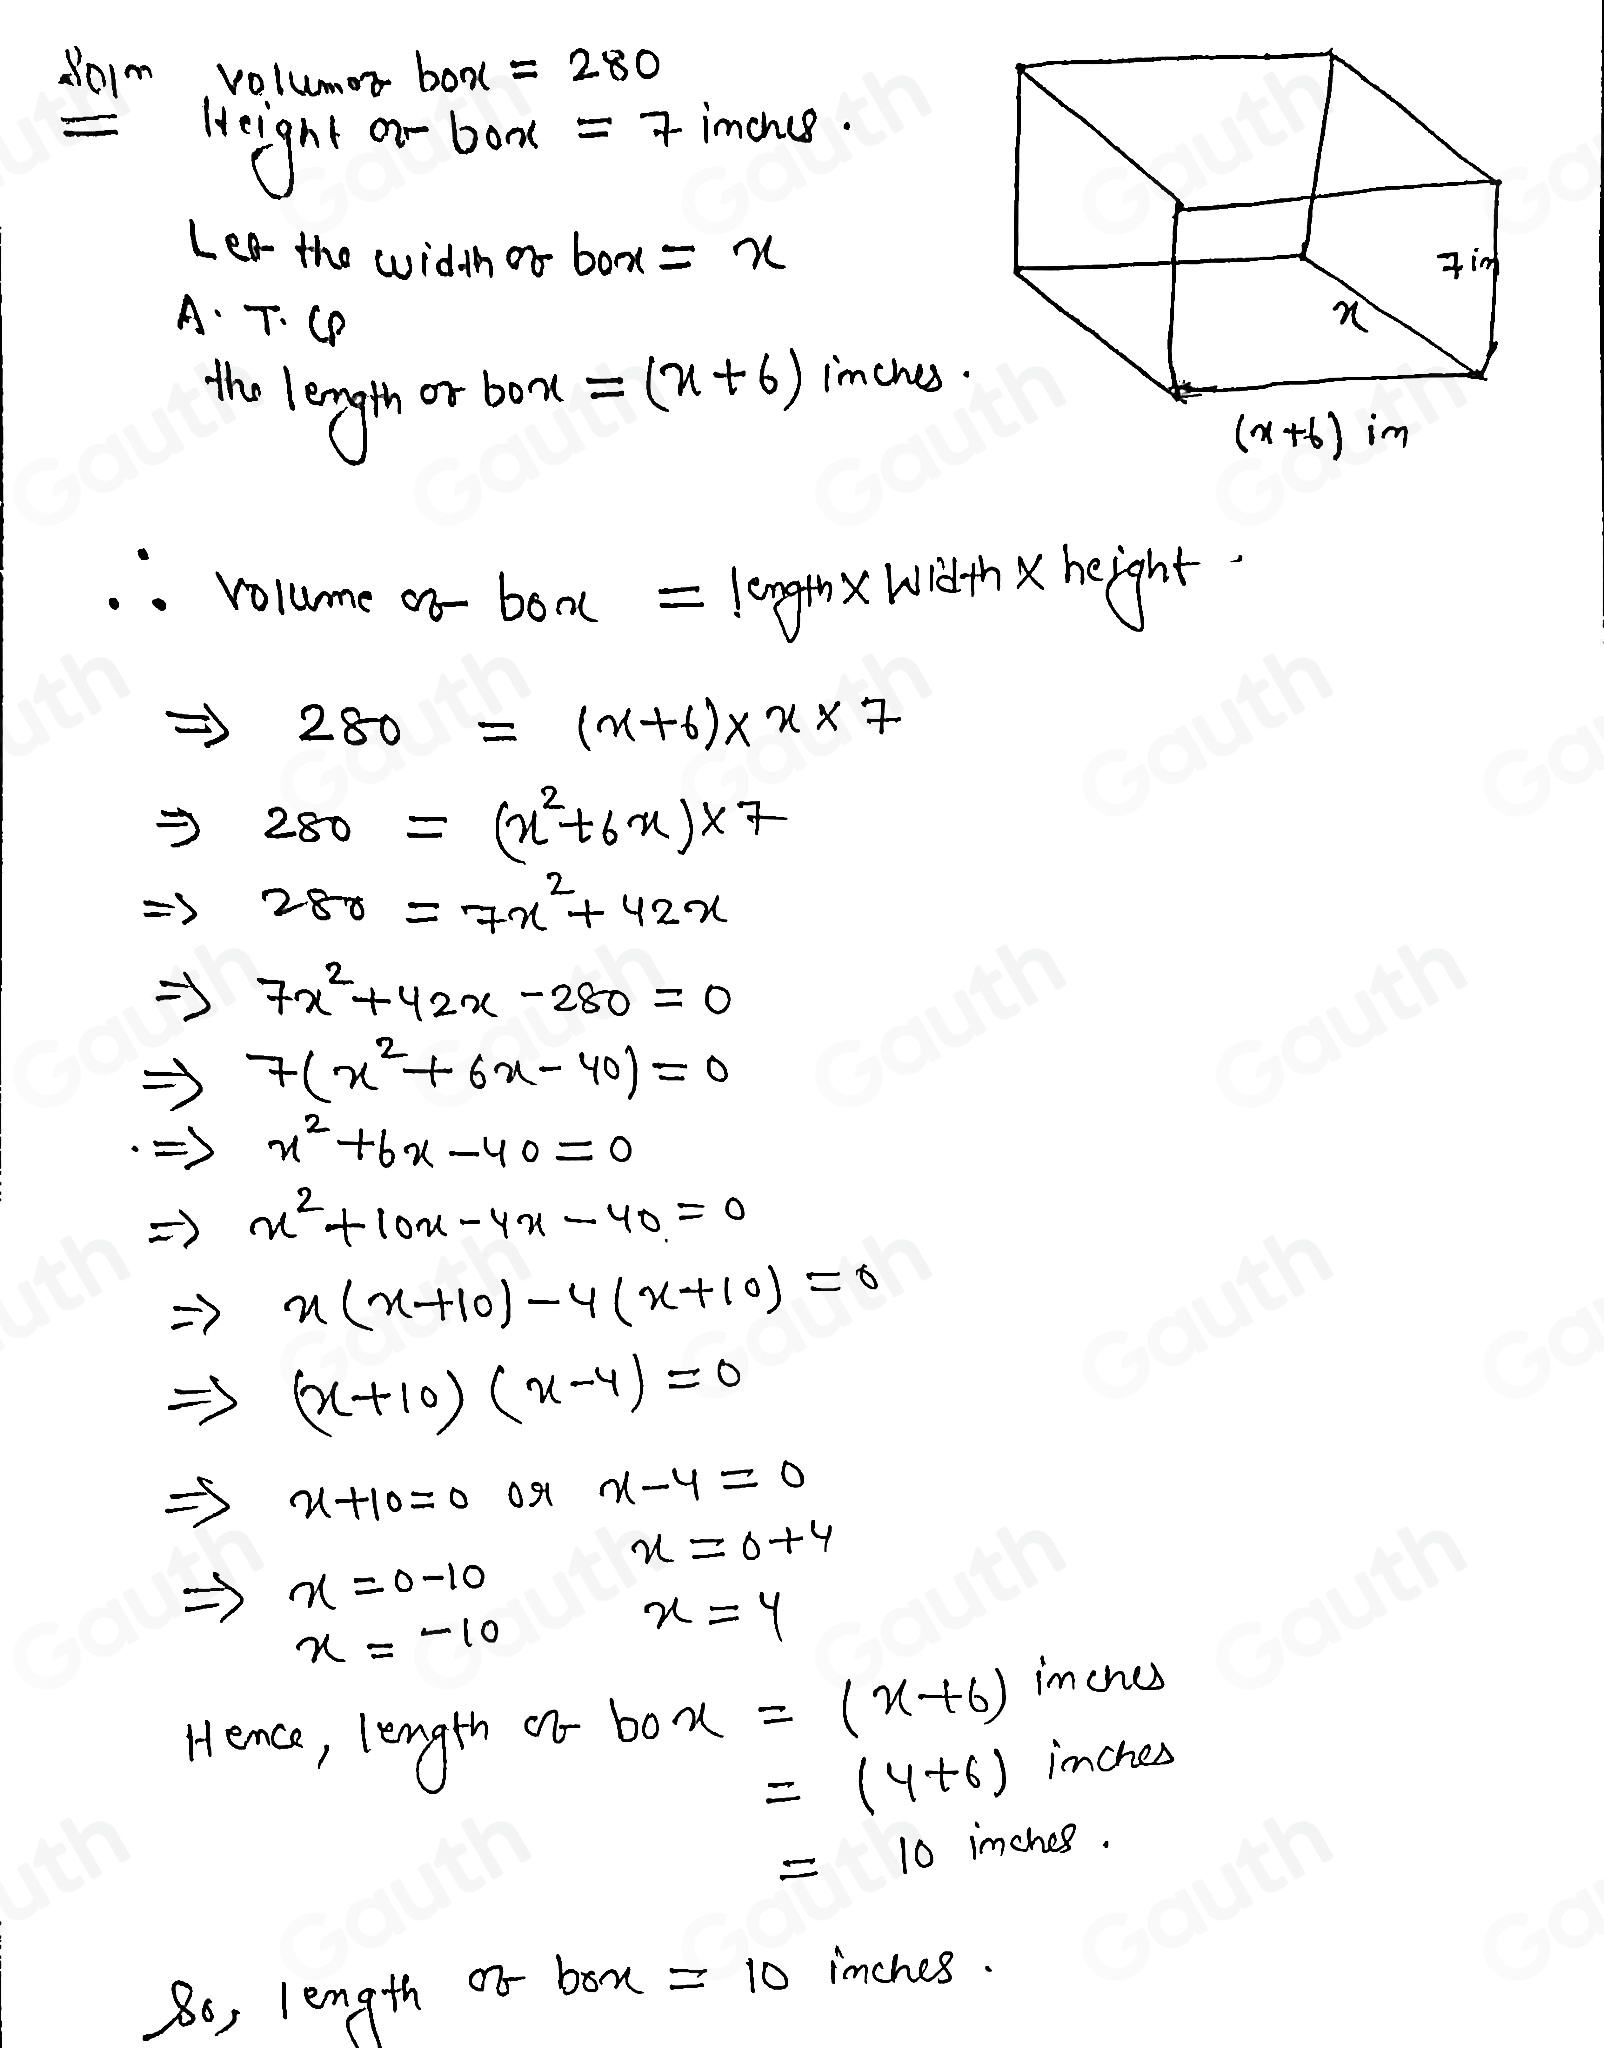 Soln Volume of box = 280
Height of box = 7 inches.
Let the width of box = x
A. T. Q
the length of box = (x+6) inches.
7 in
x
(x+6) in
∴ Volume of box = length × Width × height
⇒ 280 = (x+6) × x × 7
⇒ 280 = (x²+6x) × 7
⇒ 280 = 7x² + 42x
⇒ 7x² + 42x - 280 = 0
⇒ 7(x² + 6x - 40) = 0
⇒ x² + 6x - 40 = 0
⇒ x² + 10x - 4x - 40 = 0
⇒ x(x+10) - 4(x+10) = 0
⇒ (x+10) (x-4) = 0
⇒ x+10=0 or x-4=0
x = 0+4
⇒ x = 0-10
x = 4
x = -10
Hence, length of box = (x+6) inches
= (4+6) inches
= 10 inches.
So, length of box = 10 inches.
Gauth